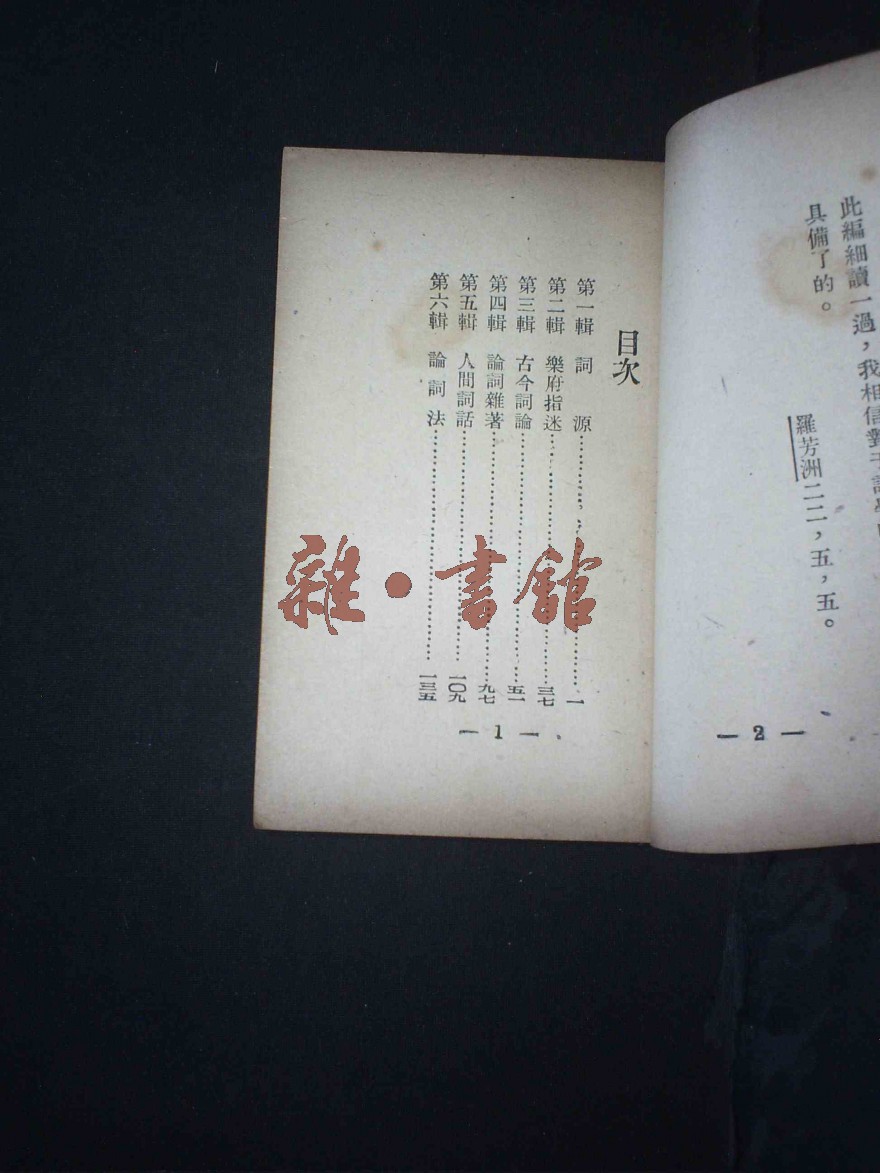 此編細讀一過，我相信對于
具備了的。
羅芳洲二二，五，五。
— 2 —
目次
第一輯 詞 源…………一
第二輯 樂府指迷…………三七
第三輯 古今詞論…………五一
第四輯 論詞雜著…………九七
第五輯 人間詞話…………一〇九
第六輯 論詞法…………一三五
— 1 —
雜·書館